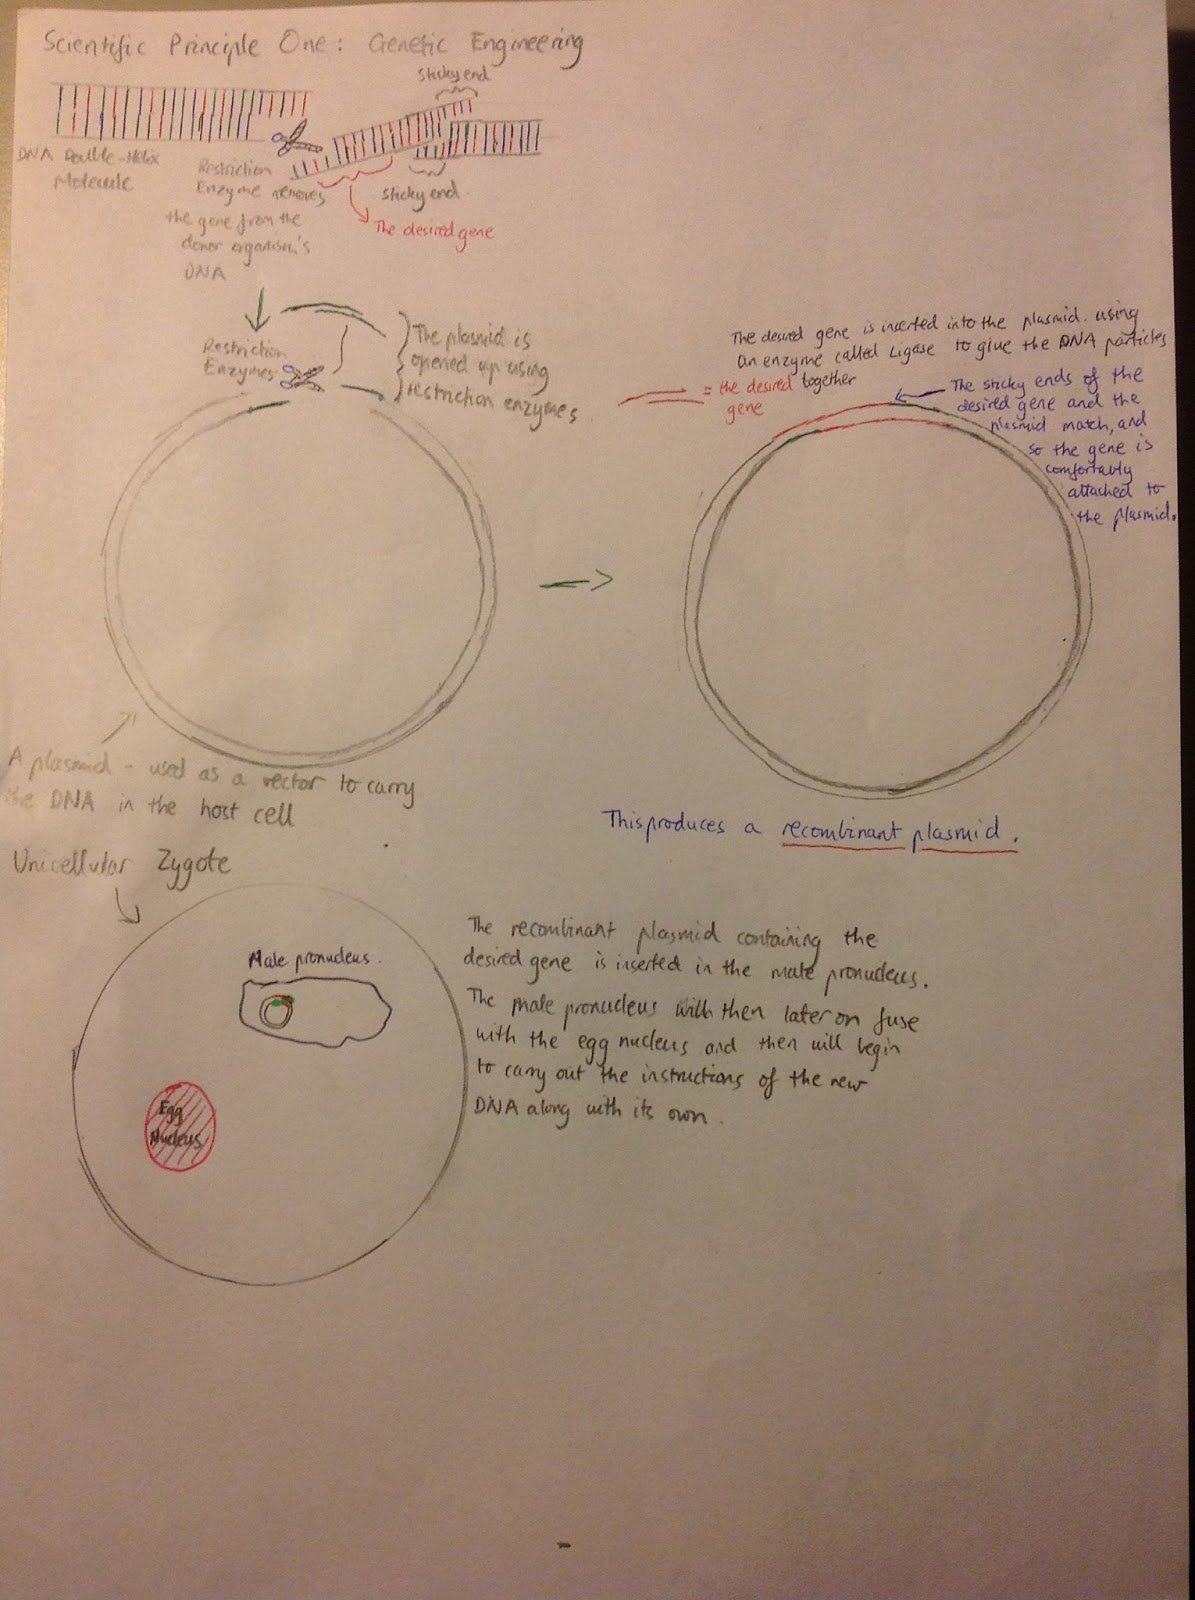 Scientific Principle One: Genetic Engineering
Sticky end
DNA Double-Helix
Molecule
Restriction
Enzyme removes
the gene from the
donor organism's
DNA
Sticky end
The desired gene
Restriction
Enzymes
The plasmid is
opened up using
restriction enzymes
The desired gene is inserted into the plasmid. using
an enzyme called Ligase to glue the DNA particles
together
= the desired
gene
The sticky ends of the
desired gene and the
plasmid match, and
so the gene is
comfortably
attached to
the plasmid.
A plasmid - used as a vector to carry
the DNA in the host cell
This produces a recombinant plasmid.
Unicellular Zygote
Male pronucleus.
Egg
Nucleus
The recombinant plasmid containing the
desired gene is inserted in the male pronucleus.
The male pronucleus will then later on fuse
with the egg nucleus and then will begin
to carry out the instructions of the new
DNA along with its own.